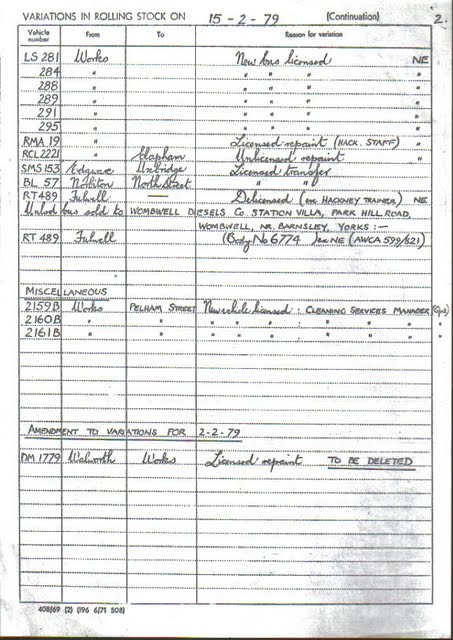 VARIATIONS IN ROLLING STOCK ON 15-2-79 (Continuation) 2.
Vehicle number From To Reason for variation
LS 281 Works New bus licensed NE
284 " " " " "
288 " " " " "
289 " " " " "
291 " " " " "
295 " " " " "
RMA 19 " Licensed repaint (HACK. STAFF) "
RCL2221 " Clapham Unlicensed repaint "
SMS 153 Edgware Uxbridge Licensed transfer
BL 57 Norbiton North Street " "
RT489 Fulwell Delicensed (ex HACKNEY TRAINER) NE
Unlicd bus sold to WOMBWELL DIESELS Co. STATION VILLA, PARK HILL ROAD,
WOMBWELL, NR. BARNSLEY, YORKS :-
RT 489 Fulwell (Body No 6774 ex NE (AWCA 599/821)
MISCELLANEOUS
2159B Works PELHAM STREET New vehicle licensed : CLEANING SERVICES MANAGER (Ops)
2160B " " " " " : " " " "
2161B " " " " " : " " " "
AMENDMENT TO VARIATIONS FOR 2-2-79
DM 1779 Walworth Works Licensed repaint TO BE DELETED
408/69 (2) (196 6/71 50B)